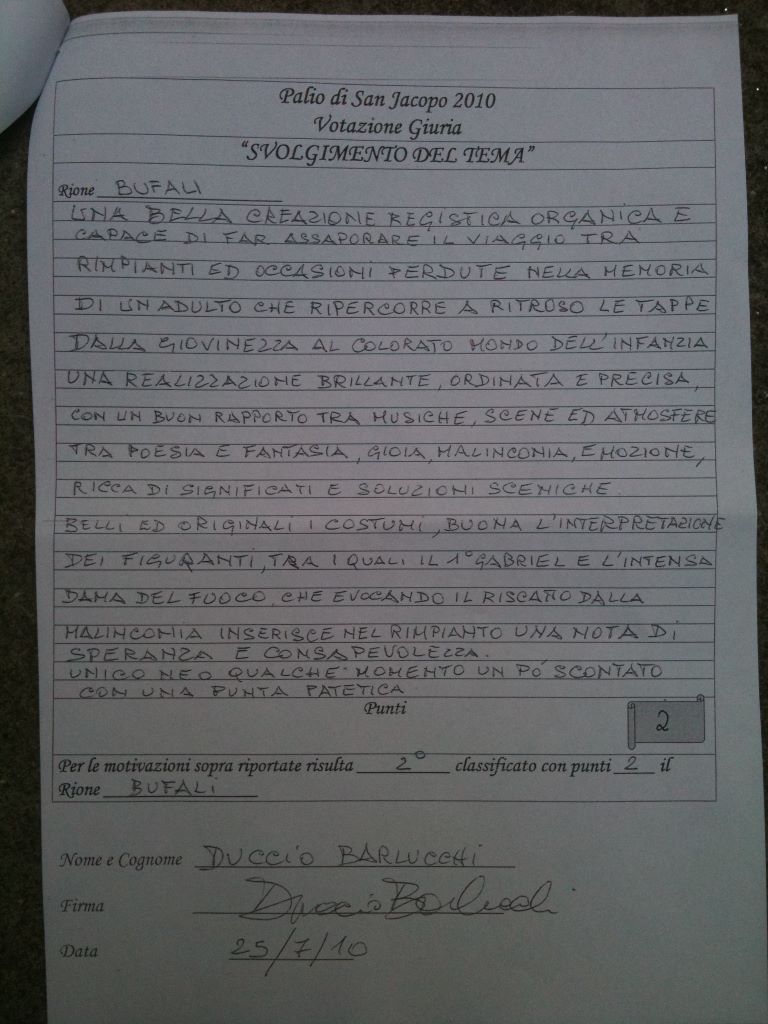 Palio di San Jacopo 2010
Votazione Giuria
"SVOLGIMENTO DEL TEMA"
Rione BUFALI
UNA BELLA CREAZIONE REGISTICA ORGANICA E
CAPACE DI FAR ASSAPORARE IL VIAGGIO TRA
RIMPIANTI ED OCCASIONI PERDUTE NELLA MEMORIA
DI UN ADULTO CHE RIPERCORRE A RITROSO LE TAPPE
DALLA GIOVINEZZA AL COLORATO MONDO DELL'INFANZIA
UNA REALIZZAZIONE BRILLANTE, ORDINATA E PRECISA,
CON UN BUON RAPPORTO TRA MUSICHE, SCENE ED ATMOSFERE
TRA POESIA E FANTASIA, GIOIA, MALINCONIA, EMOZIONE,
RICCA DI SIGNIFICATI E SOLUZIONI SCENICHE.
BELLI ED ORIGINALI I COSTUMI, BUONA L'INTERPRETAZIONE
DEI FIGURANTI, TRA I QUALI IL 1° GABRIEL E L'INTENSA
DAMA DEL FUOCO, CHE EVOCANDO IL RISCATTO DALLA
MALINCONIA INSERISCE NEL RIMPIANTO UNA NOTA DI
SPERANZA E CONSAPEVOLEZZA.
UNICO NEO QUALCHE MOMENTO UN PO' SCONTATO
CON UNA PUNTA PATETICA
Punti
2
Per le motivazioni sopra riportate risulta 2° classificato con punti 2 il
Rione BUFALI
Nome e Cognome DUCCIO BARLUCCHI
Firma Duccio Barlucchi
Data 25/7/10